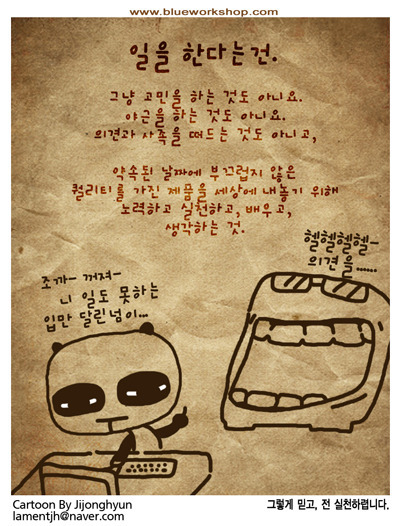 www.blueworkshop.com
일을 한다는건.
그냥 고민을 하는 것도 아니요.
야근을 하는 것도 아니요.
의견과 사족을 떠드는 것도 아니고,
약속된 날짜에 부끄럽지 않은
퀄리티를 가진 제품을 세상에 내놓기 위해
노력하고 실천하고, 배우고,
생각하는 것.
헬헬헬헬-
의견 을......
조까- 꺼져-
니 일도 못하는
입만 달린넘이...
Cartoon By Jijonghyun
lamentjh@naver.com
그렇게 믿고, 전 실천하렵니다.